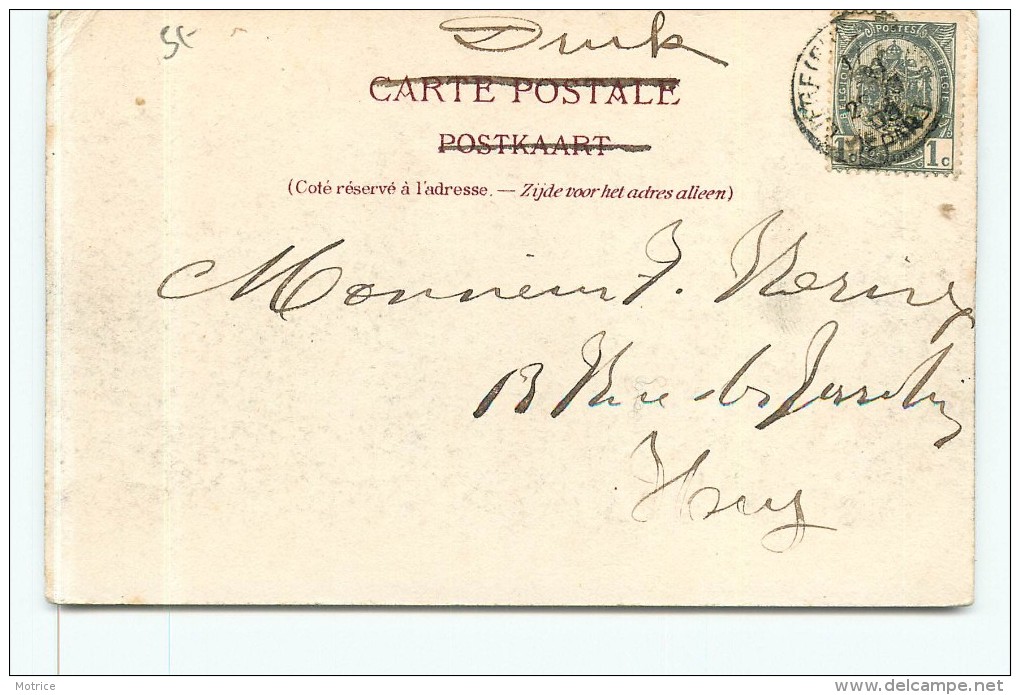 5-
Druk
CARTE POSTALE
POSTKAART
(Coté réservé à l'adresse. — Zijde voor het adres alleen)
POSTES
BELGIQUE BELGIE
1c 1c
Monsieur J.
13 Rue des
Huy
Motrice
delcampe.net